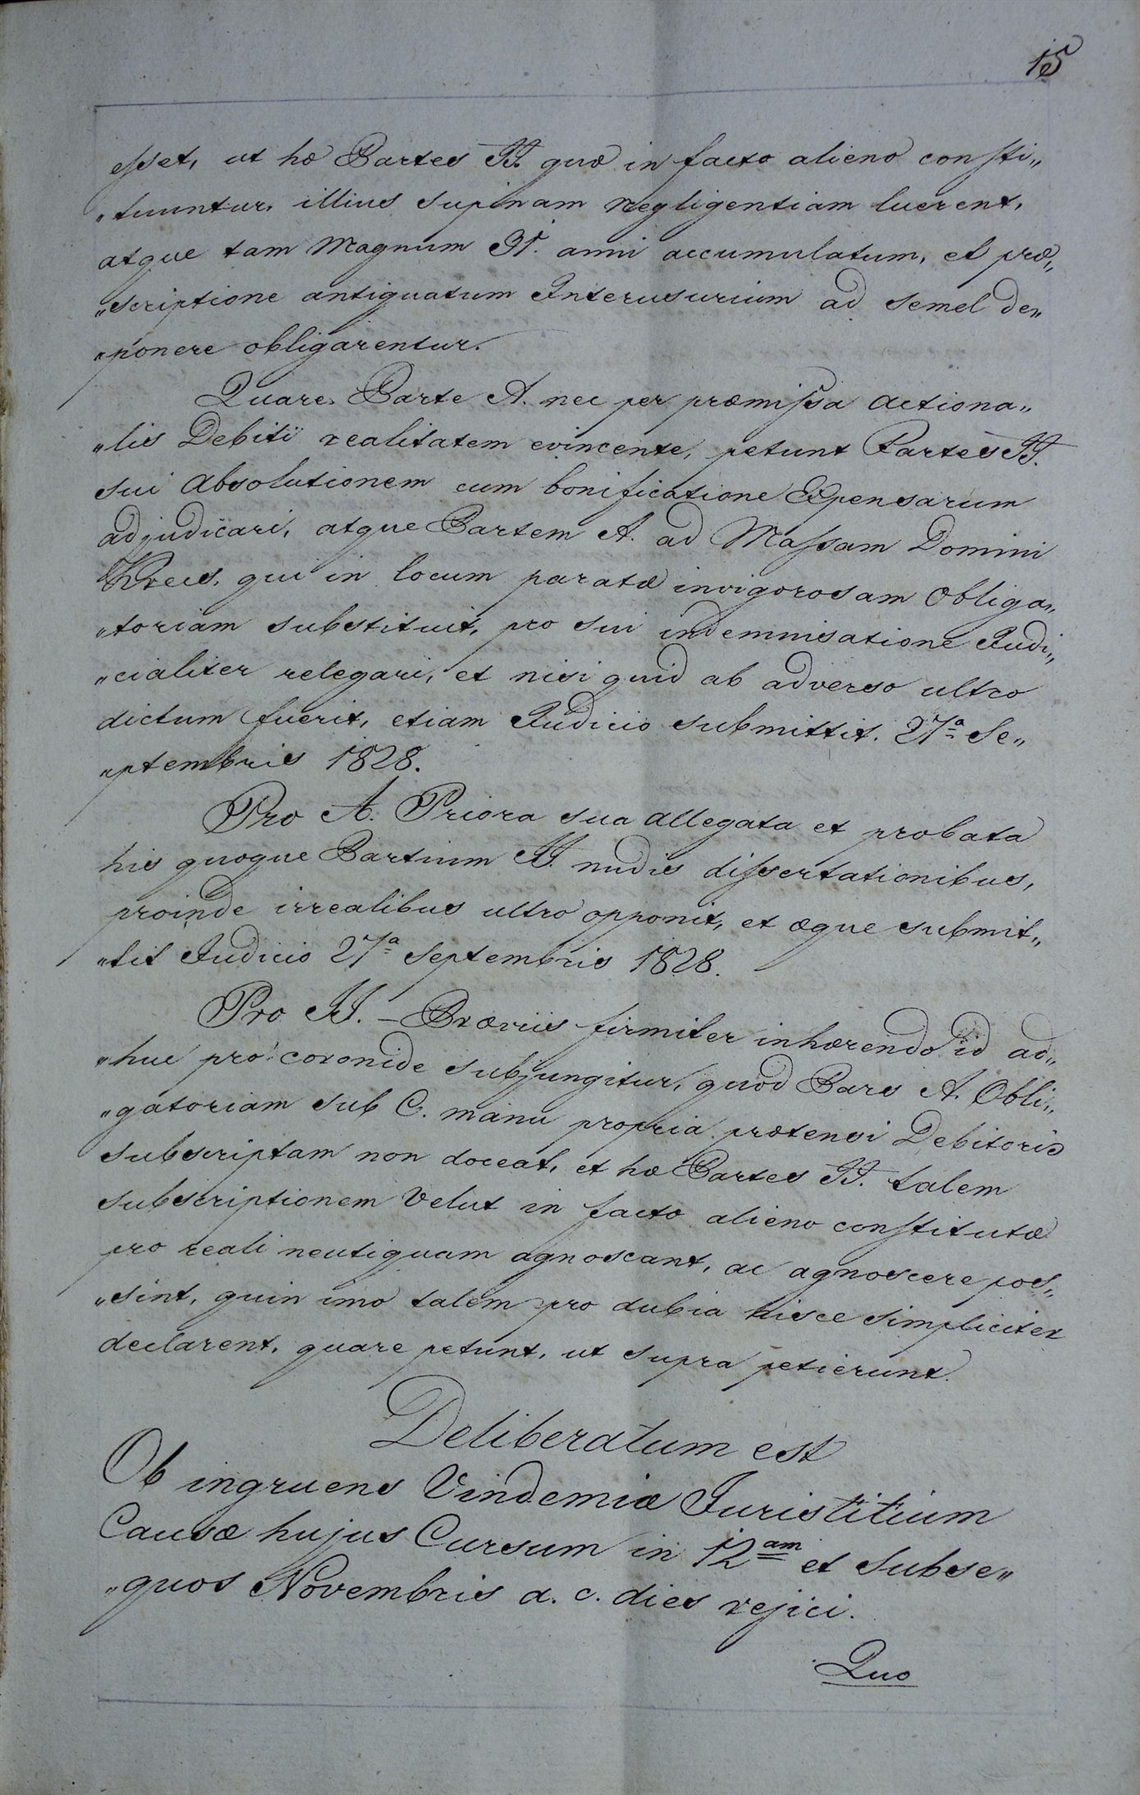 15
esset, ut hæ Partes II. quæ in facto alieno consti„
„tuuntur, illius supinam negligentiam luerent,
atque tam Magnum 31. anni accumulatum, et præ„
„scriptione antiquatum Interusurium ad semel de„
„ponere obligarentur.
Quare Parte A. nec per præmissa actiona„
„lis Debiti realitatem evincente, petunt Partes II.
sui Absolutionem cum bonificatione Expensarum
adjudicari, atque Partem A. ad Massam Domini
qui in locum paratæ invigorosam Obliga„
„toriam substituit, pro sui indemnisatione Judi„
„cialiter relegari, et nisi quid ab adverso ultro
dictum fuerit, etiam Judicio submittit. 27ª Se„
„ptembris 1828.
Pro A. Priora sua allegata et probata
his quoque Partium II. nudis dissertationibus,
proinde irrealibus ultro opponit, et æque submit„
„tit Judicio 27ª Septembris 1828.
Pro II. – Præviis firmiter inhærendo id ad„
„huc pro coronide subjungitur, quod Pars A. Obli„
„gatoriam sub C. manu propria prætensi Debitoris
subscriptam non doceat, et hæ Partes II. talem
subscriptionem velut in facto alieno constitutæ
pro reali neutiquam agnoscant, ac agnoscere pos„
„sint, quin imo talem pro dubia hisce simpliciter
declarent, quare petunt, ut supra petierunt.
Deliberatum est
Ob ingruens Vindemiæ Juristitium
Causæ hujus Cursum in 12am et subse„
„quos Novembris a. c. dies rejici.
Quo